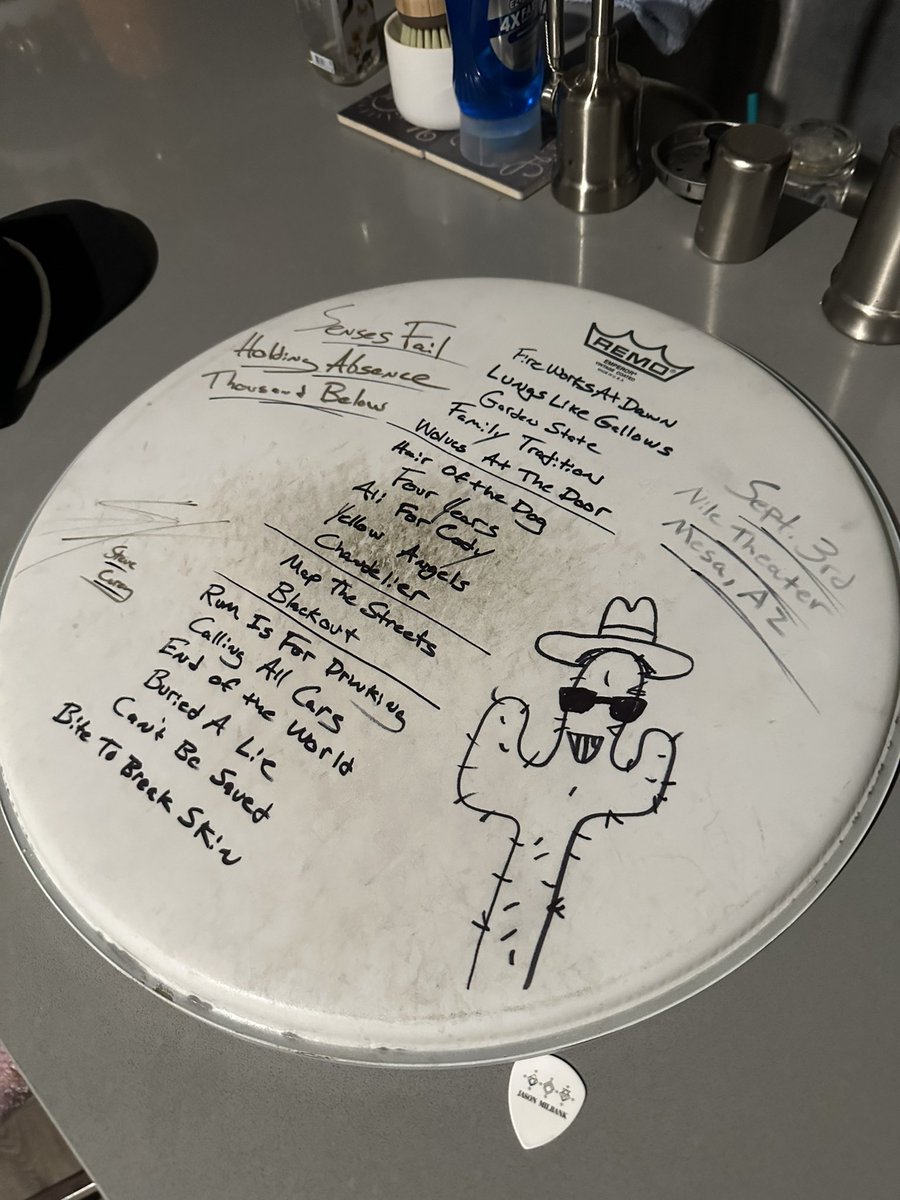 4X
Senses Fail
Holding Absence
Thousand Below
REMO
EMPEROR
VINTAGE COATED
MADE IN U.S.A.
Fire Works At Dawn
Lungs Like Gallows
Garden State
Family Tradition
Wolves At The Door
Hair Of the Dog
Four Years
All For Cody
Yellow Angels
Chandelier
Map The Streets
Blackout
Rum Is For Drinking
Calling All Cars
End of the World
Buried A Lie
Can't Be Saved
Bite To Break Skin
Sept. 3rd
Nile Theater
Mesa, AZ
Steve
JASON MILBANK